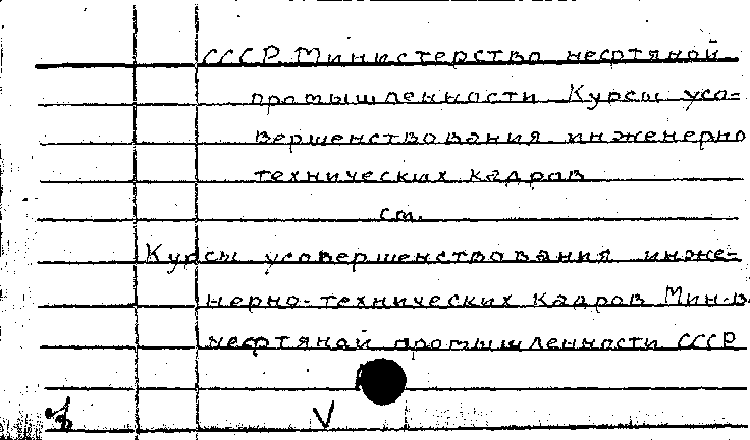 СССР. Министерство нефтяной
промышленности Курсы усо-
вершенствования инженерно
технических кадров
см.
Курсы усовершенствования инже-
нерно-технических кадров Мин-в
нефтяной промышленности СССР
V